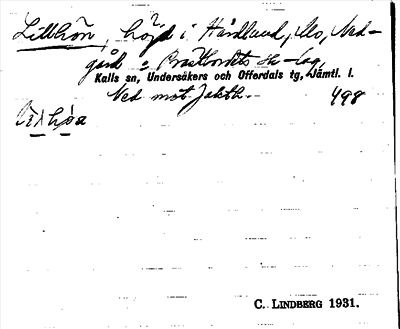 Lillhön, höjd i Hårdlund, Mo, Ned-
gård o Prästbordets sk-lag,
Kalls sn, Undersåkers och Offerdals tg, Jämtl. l.
Ned mot Jaktk. 498
C. LINDBERG 1931.